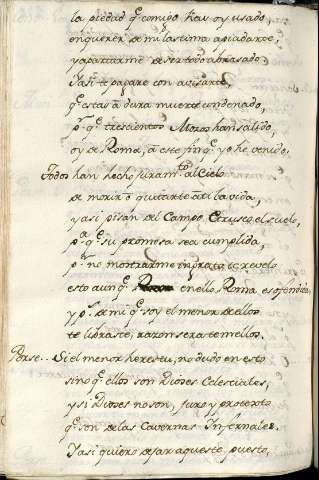 la piedad q.e conmigo hau oy usado,
enquerer de mi lastima apiadarte,
y apartarme de ser todo abrasado
Yasi te pagare con avisarte,
q.e estas a dura muerte condenado,
p.r q.e trescientos Mozos han salido,
oy de Roma, a este fin q.e yo he venido.
Todos han hecho juram.to al Cielo
de morir o quitarte a ti la vida,
y asi pisan del Campo Etrusco el suelo,
p.a q.e su promesa sea cumplida,
p.r no mostrarme ingrato te revelo
esto aunq.e en ello Roma es ofendida
y p.r de mi q.e soy el menor de ellos
te libraste, razon sera temellos.
Porse.. Si el menor heres tu, no dudo en esto
sino q.e ellos son Dioses Celestiales,
y si Dioses no son, juro y protexto
q.e son de las Cavernas Infernales.
Yasi quiero dejar aqueste puesto,